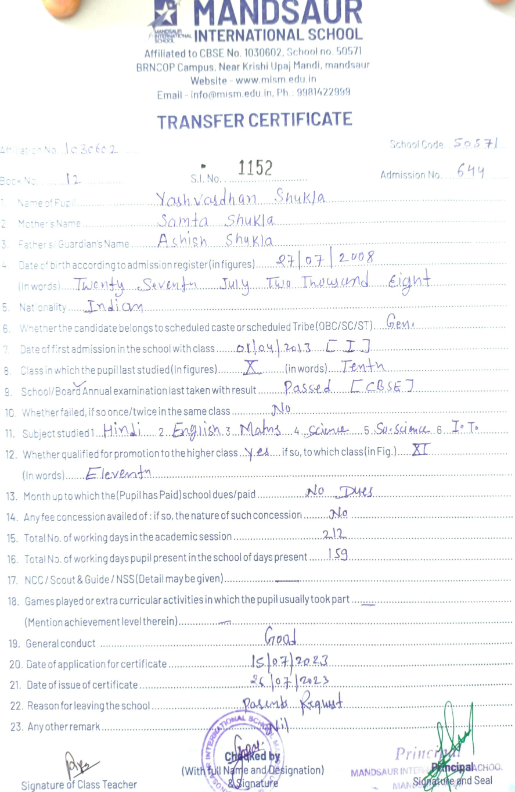 MANDSAUR
INTERNATIONAL SCHOOL
MANDSAUR INTERNATIONAL SCHOOL
Affiliated to CBSE No. 1030602, School no. 50571
BRNCOP Campus, Near Krishi Upaj Mandi, mandsaur
Website - www.mism.edu.in
Email - info@mism.edu.in, Ph. 9981422999
TRANSFER CERTIFICATE
Affiliation No. 1030602 School Code 50571
Book No. 12 S.I. No. 1152 Admission No. 644
1. Name of Pupil Yashvardhan Shukla
2. Mother's Name Samta Shukla
3. Father's/ Guardian's Name Ashish Shukla
4. Date of birth according to admission register (in figures) 27/07/2008
(in words) Twenty Seventh July Two Thousand Eight
5. Nationality Indian
6. Whether the candidate belongs to scheduled caste or scheduled Tribe (OBC/SC/ST) Gen.
7. Date of first admission in the school with class 01/04/2013 [I]
8. Class in which the pupil last studied (in figures) X (in words) Tenth
9. School/Board Annual examination last taken with result Passed [CBSE]
10. Whether failed, if so once/twice in the same class No
11. Subject studied 1. Hindi 2. English 3. Maths 4. Science 5. So. science 6. I.T.
12. Whether qualified for promotion to the higher class Yes if so, to which class (in Fig.) XI
(In words) Eleventh
13. Month up to which the (Pupil has Paid) school dues/paid No Dues
14. Any fee concession availed of : if so, the nature of such concession No
15. Total No. of working days in the academic session 212
16. Total No. of working days pupil present in the school of days present 159
17. NCC / Scout & Guide / NSS (Detail may be given) —
18. Games played or extra curricular activities in which the pupil usually took part —
(Mention achievement level therein) —
19. General conduct Good
20. Date of application for certificate 15/07/2023
21. Date of issue of certificate 26/07/2023
22. Reason for leaving the school Parents Request
23. Any other remark Nil
Checked by Principal Principal
(With full Name and Designation) MANDSAUR INTERNATIONAL SCHOOL
Signature of Class Teacher & Signature Signature and Seal